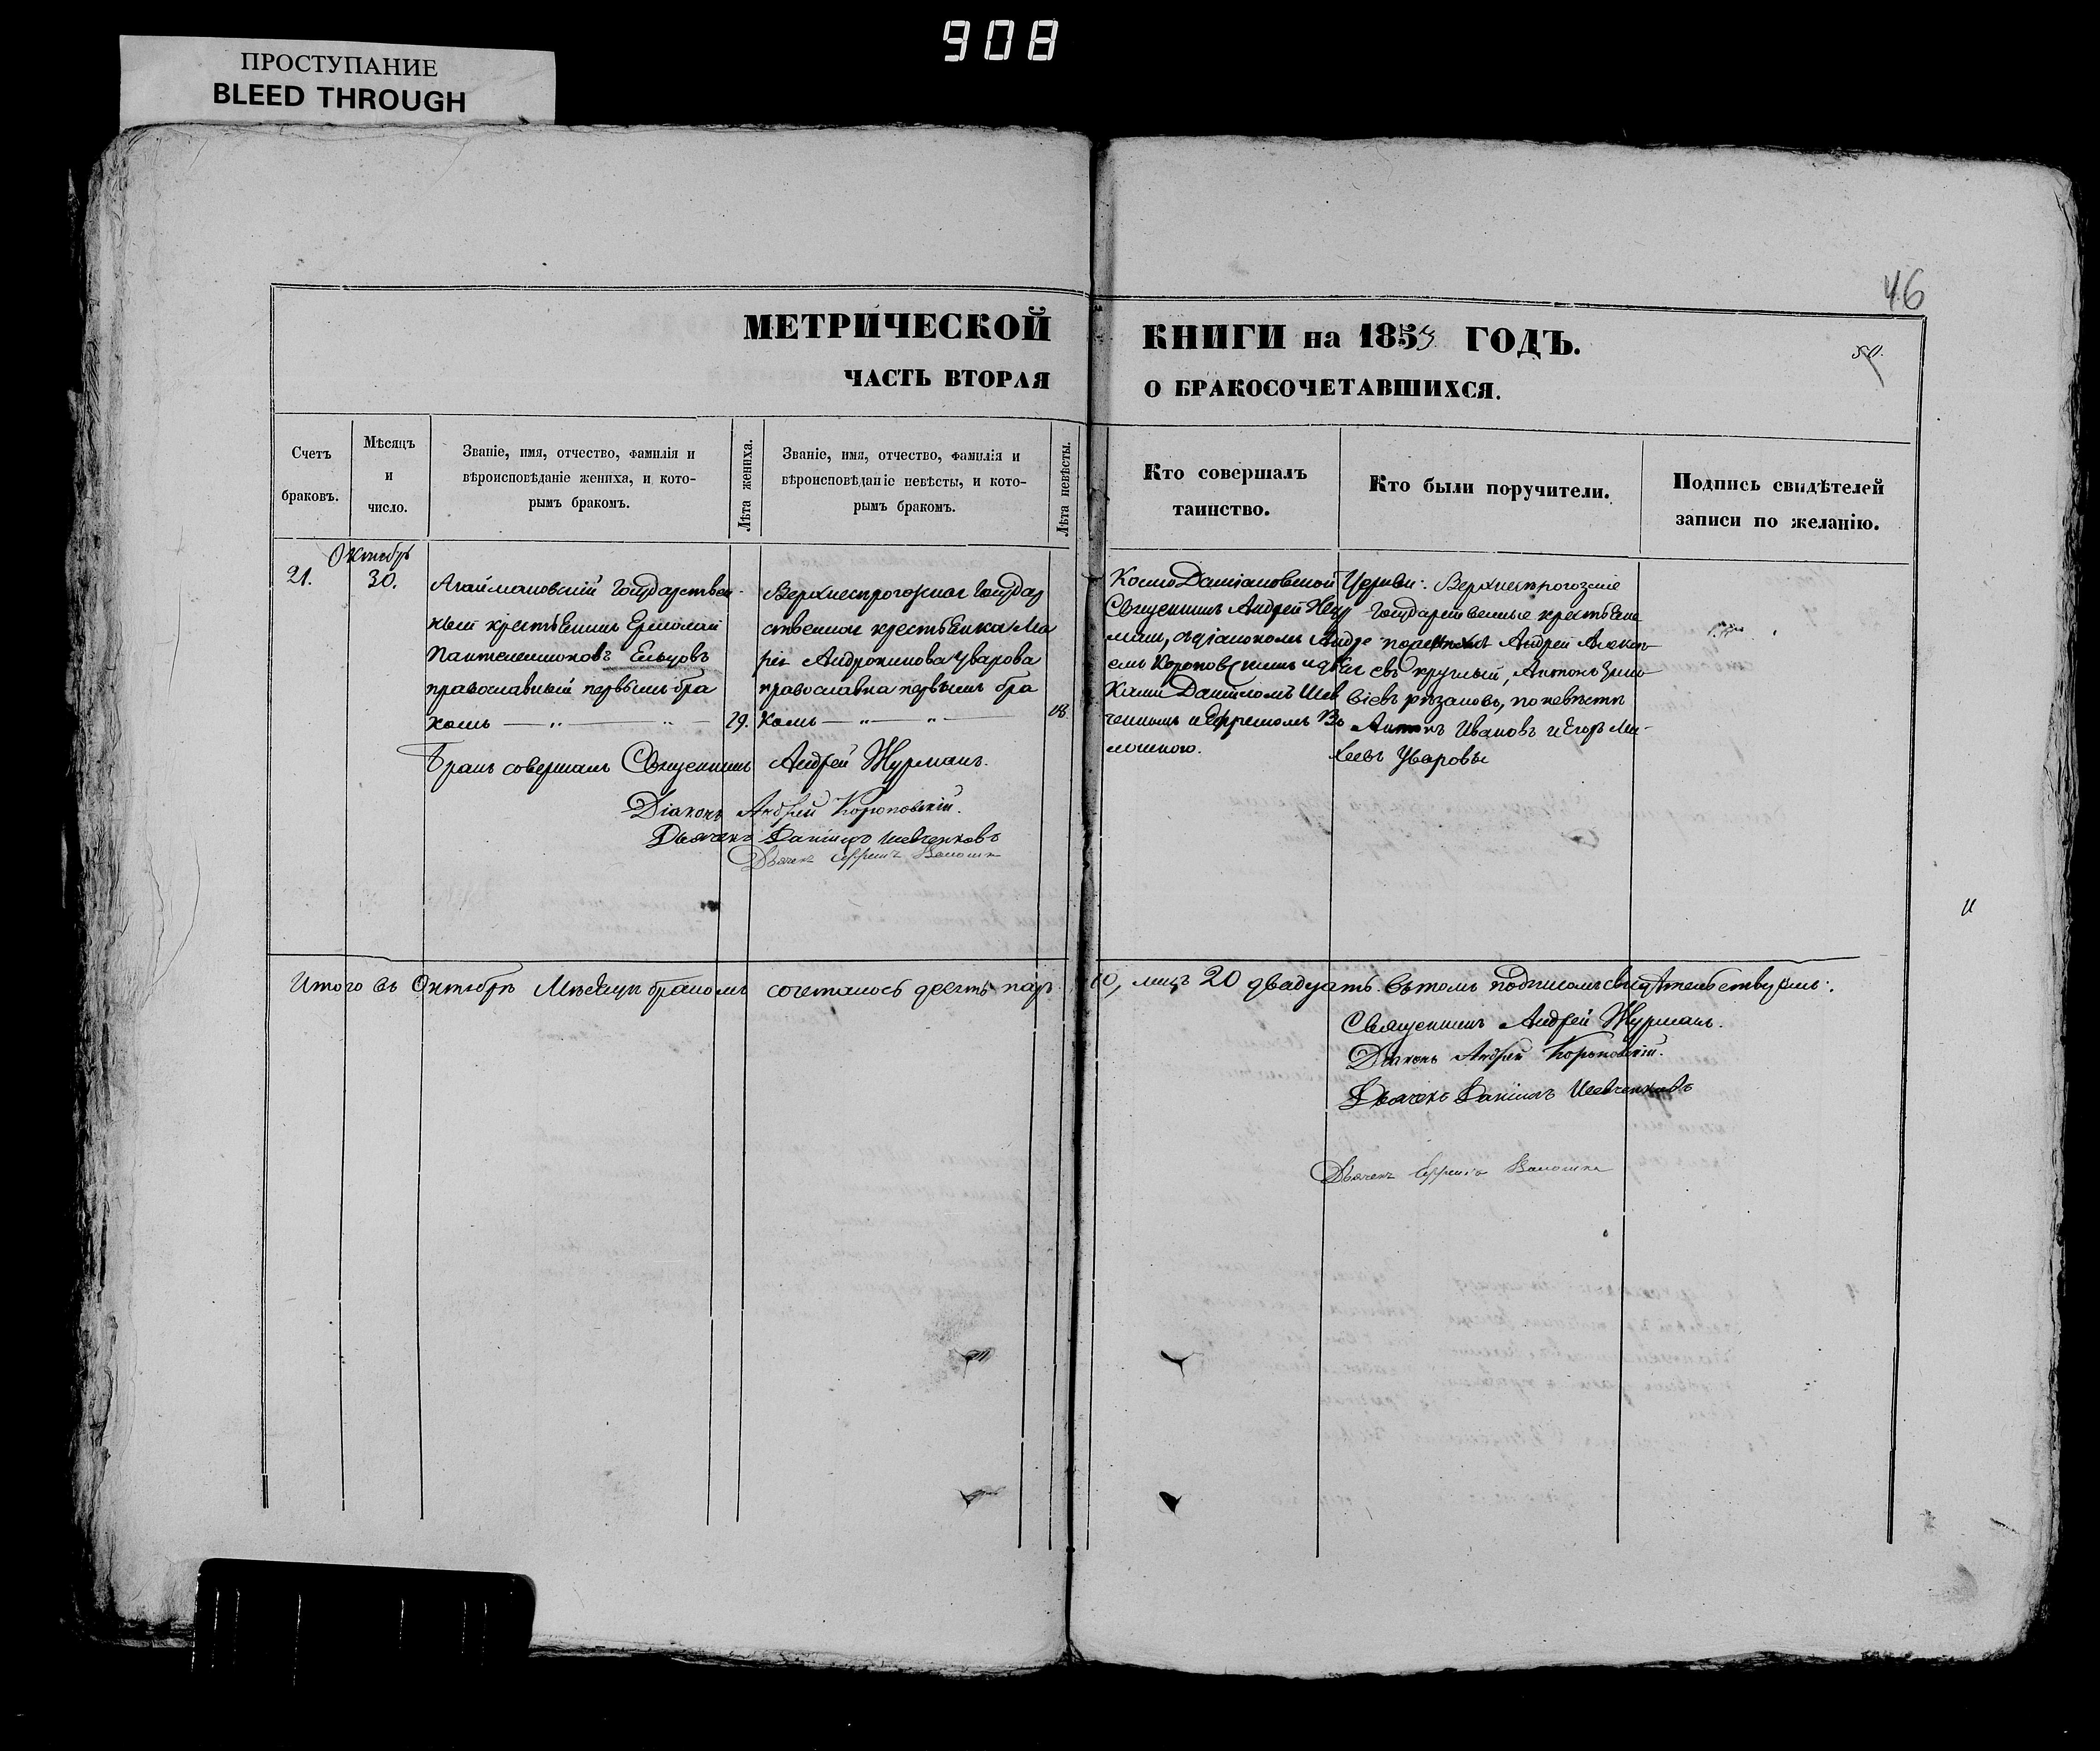 908
ПРОСТУПАНИЕ
BLEED THROUGH
46
МЕТРИЧЕСКОЙ КНИГИ на 1853 ГОДЪ.
50.
ЧАСТЬ ВТОРАЯ О БРАКОСОЧЕТАВШИХСЯ.
Счетъ браковъ.
Мѣсяцъ и число.
Званіе, имя, отчество, фамилія и
вѣроисповѣданіе жениха, и кото-
рымъ бракомъ.
Лѣта жениха.
Званіе, имя, отчество, фамилія и
вѣроисповѣданіе невѣсты, и кото-
рымъ бракомъ.
Лѣта невѣсты.
Кто совершалъ
таинство.
Кто были поручители.
Подпись свидѣтелей
записи по желанію.
Октябрь
21.
30.
Агаймановскій Государствен-
ный крестьянинъ Ермолай
Пантелеимоновъ Ельцовъ
православный первымъ бра
комъ — „ — „ — 29.
Верхнерогожская Государ
ственная крестьянка Ма
рія Андроникова Уварова
православна первымъ бра
комъ — „ — „ — 18
Космо Даміановской Церкви:
Священникъ Андрей Жур
манъ, съ діакономъ Андре
емъ Короповскимъ и дья
ками Даниломъ Шев
ченкомъ и Ефремомъ Во
лошиного.
Верхнерогозскіе
Государственные крестьяне
по женихѣ Андрей Алексѣ
евъ круглый, Антонъ Зино
віевъ рѣзановъ, по невѣсте
Антонъ Ивановъ и Егоръ Ми-
хеевъ Уваровы
Бракъ совершалъ Священникъ Андрей Журманъ.
Діаконъ Андрей Короповскій.
Дьячекъ Данилъ Шевченковъ
Дьячекъ Ефремъ Волошин
Итого въ Октябрѣ Мѣсяцѣ бракомъ сочеталось десять паръ 10, лицъ 20 двадцать. въ томъ подписомъ свидѣтельствуемъ:
Священникъ Андрей Журманъ.
Діаконъ Андрей Короповскій.
Дьячекъ Данилъ Шевченковъ
Дьячекъ Ефремъ Волошин